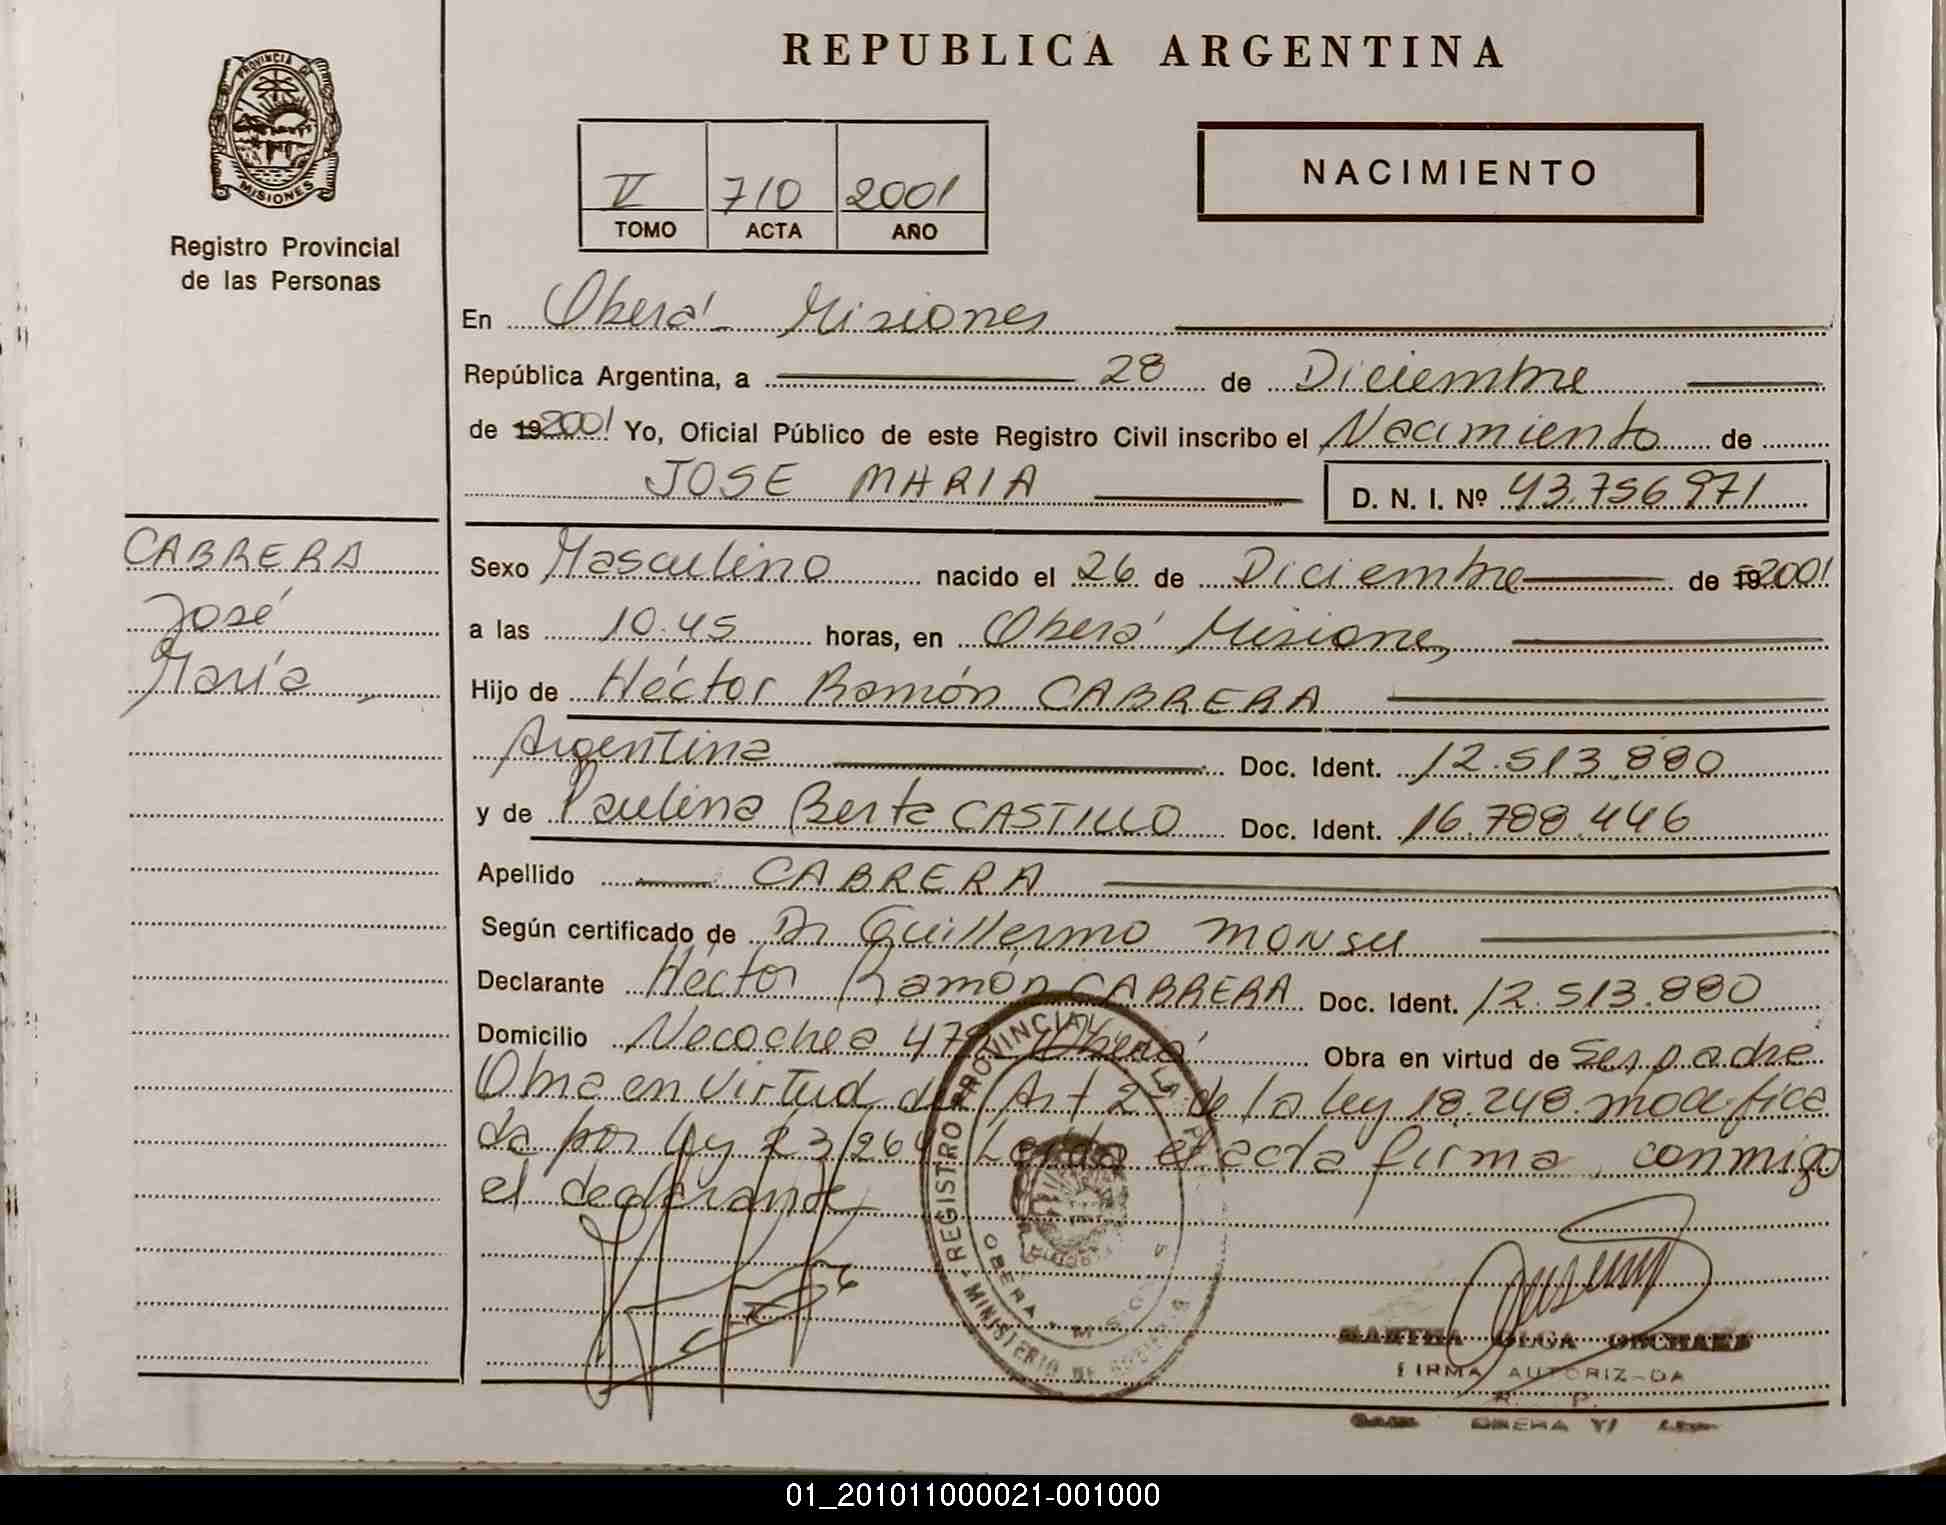 REPUBLICA ARGENTINA
PROVINCIA DE
MISIONES
Registro Provincial
de las Personas
V 710 2001
TOMO ACTA AÑO
NACIMIENTO
En Oberá - Misiones
República Argentina, a 28 de Diciembre
de 192001 Yo, Oficial Público de este Registro Civil inscribo el Nacimiento de
JOSE MARIA D. N. I. Nº 43.756.971
CABRERA
José
María
Sexo Masculino nacido el 26 de Diciembre de 192001
a las 10.45 horas, en Oberá Misiones
Hijo de Héctor Ramón CABRERA
Argentina Doc. Ident. 12.513.880
y de Paulina Berta CASTILLO Doc. Ident. 16.788.446
Apellido CABRERA
Según certificado de Dr Guillermo MONSU
Declarante Héctor Ramón CABRERA Doc. Ident. 12.513.880
Domicilio Necochea 478 Oberá Obra en virtud de Ser padre
Obra en virtud del Art 2 de la ley 18.248 modifica
da por ley 23/264 Leída el acta firma conmigo
el declarante
REGISTRO PROVINCIAL DE LAS P
OBERA
MINISTERIO DE GOBIERNO
MARTHA OLGA
FIRMA AUTORIZADA
R. P.
OBERA
01_201011000021-001000